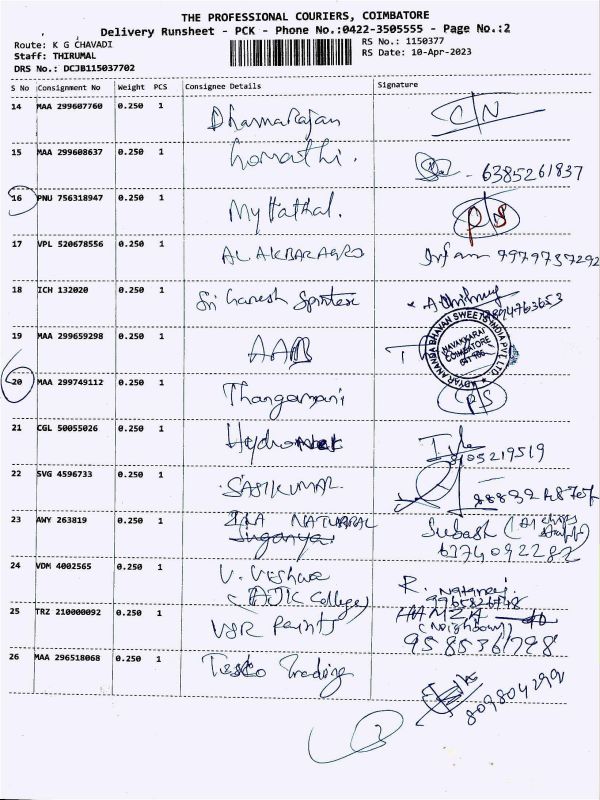 THE PROFESSIONAL COURIERS, COIMBATORE
Delivery Runsheet - PCK - Phone No.:0422-3505555 - Page No.:2
Route: K G CHAVADI RS No.: 1150377
Staff: THIRUMAL RS Date: 10-Apr-2023
DRS No.: DCJB115037702
S No Consignment No Weight PCS Consignee Details Signature
14 MAA 299607760 0.250 1 Dharmarajan C/N
15 MAA 299608637 0.250 1 Gomathi. - 6385261837
16 PNU 756318947 0.250 1 Myllathal. P/S
17 VPL 520678556 0.250 1 AL AKBAR AGRO Irfan 9979757292
18 ICH 132020 0.250 1 Sri Ganesh Sprintex 9894763653
19 MAA 299659298 0.250 1 AAB
ADYAR ANANDA BHAVAN SWEETS INDIA PVT. LTD.
NAVAKKARAI
COIMBATORE
20 MAA 299749112 0.250 1 Thangamani P/S
21 CGL 50055026 0.250 1 8105219519
22 SVG 4596733 0.250 1 SASIKUMAR.
23 AWY 263819 0.250 1 NATURRAL Subash
Suganya 6374092282
24 VDM 4002565 0.250 1 V. Vishwa R. Nataraj
(AJK College) 9965826748
25 TRZ 210000092 0.250 1 VSR Paints HAMZA
(Neighbour)
9585361798
26 MAA 296518068 0.250 1 Tesco Trading 809804299